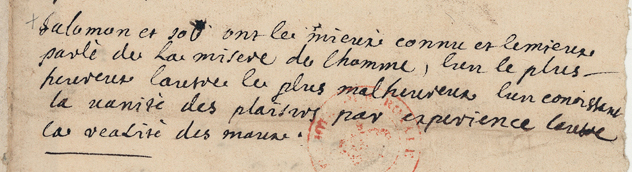 Salomon et Job ont le mieux connu et le mieux
parlé de la misere de lhomme, lun le plus
heureux lautre le plus malheureux lun conoissant
la vanité des plaisirs par experience lautre
la realité des maux.